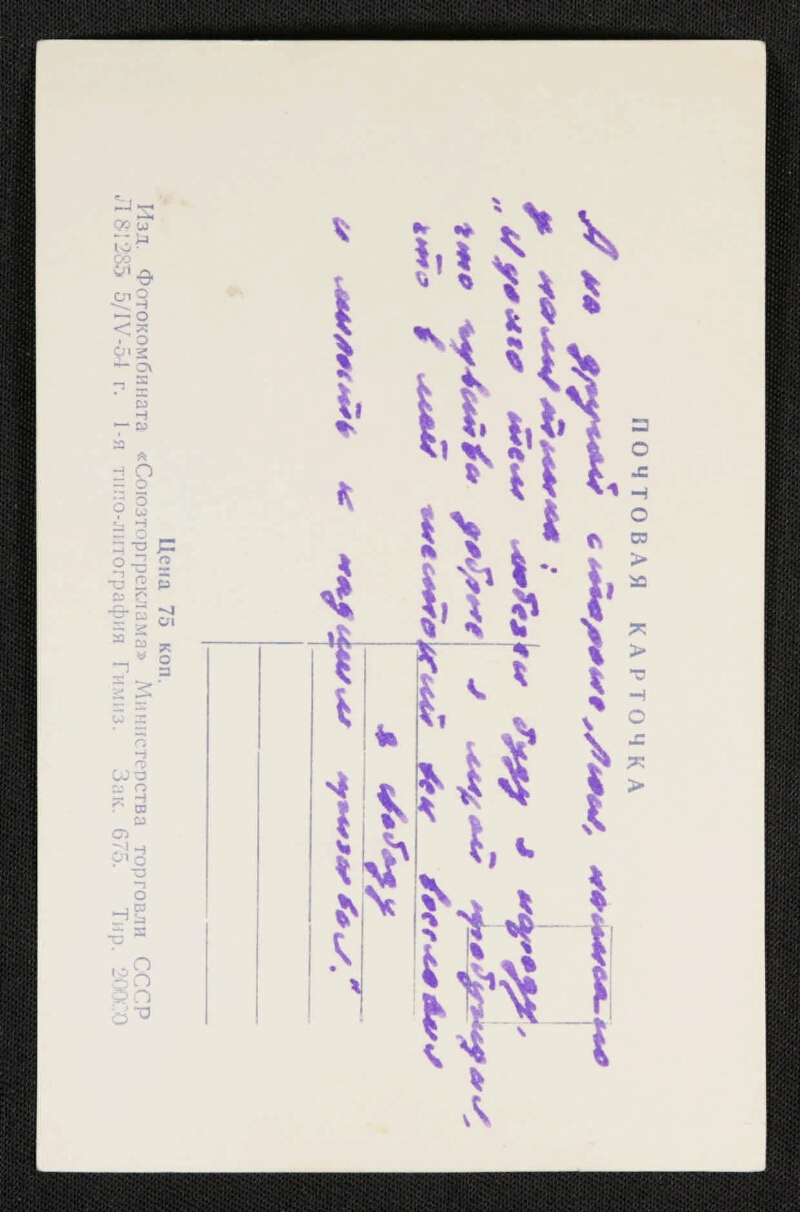 ПОЧТОВАЯ КАРТОЧКА
А на другой стороне, Люси, написано
у памятника:
„И долго тем любезен буду я народу,
что чувства добрые я лирой пробуждал,
что в мой жестокий век восславил
я свободу
и милость к падшим призывал."
Цена 75 коп.
Изд. Фотокомбината «Союзторгреклама» Министерства торговли СССР
Л 81285 5/IV-54 г. 1-я типо-литография Гимиз. Зак. 675. Тир. 20000